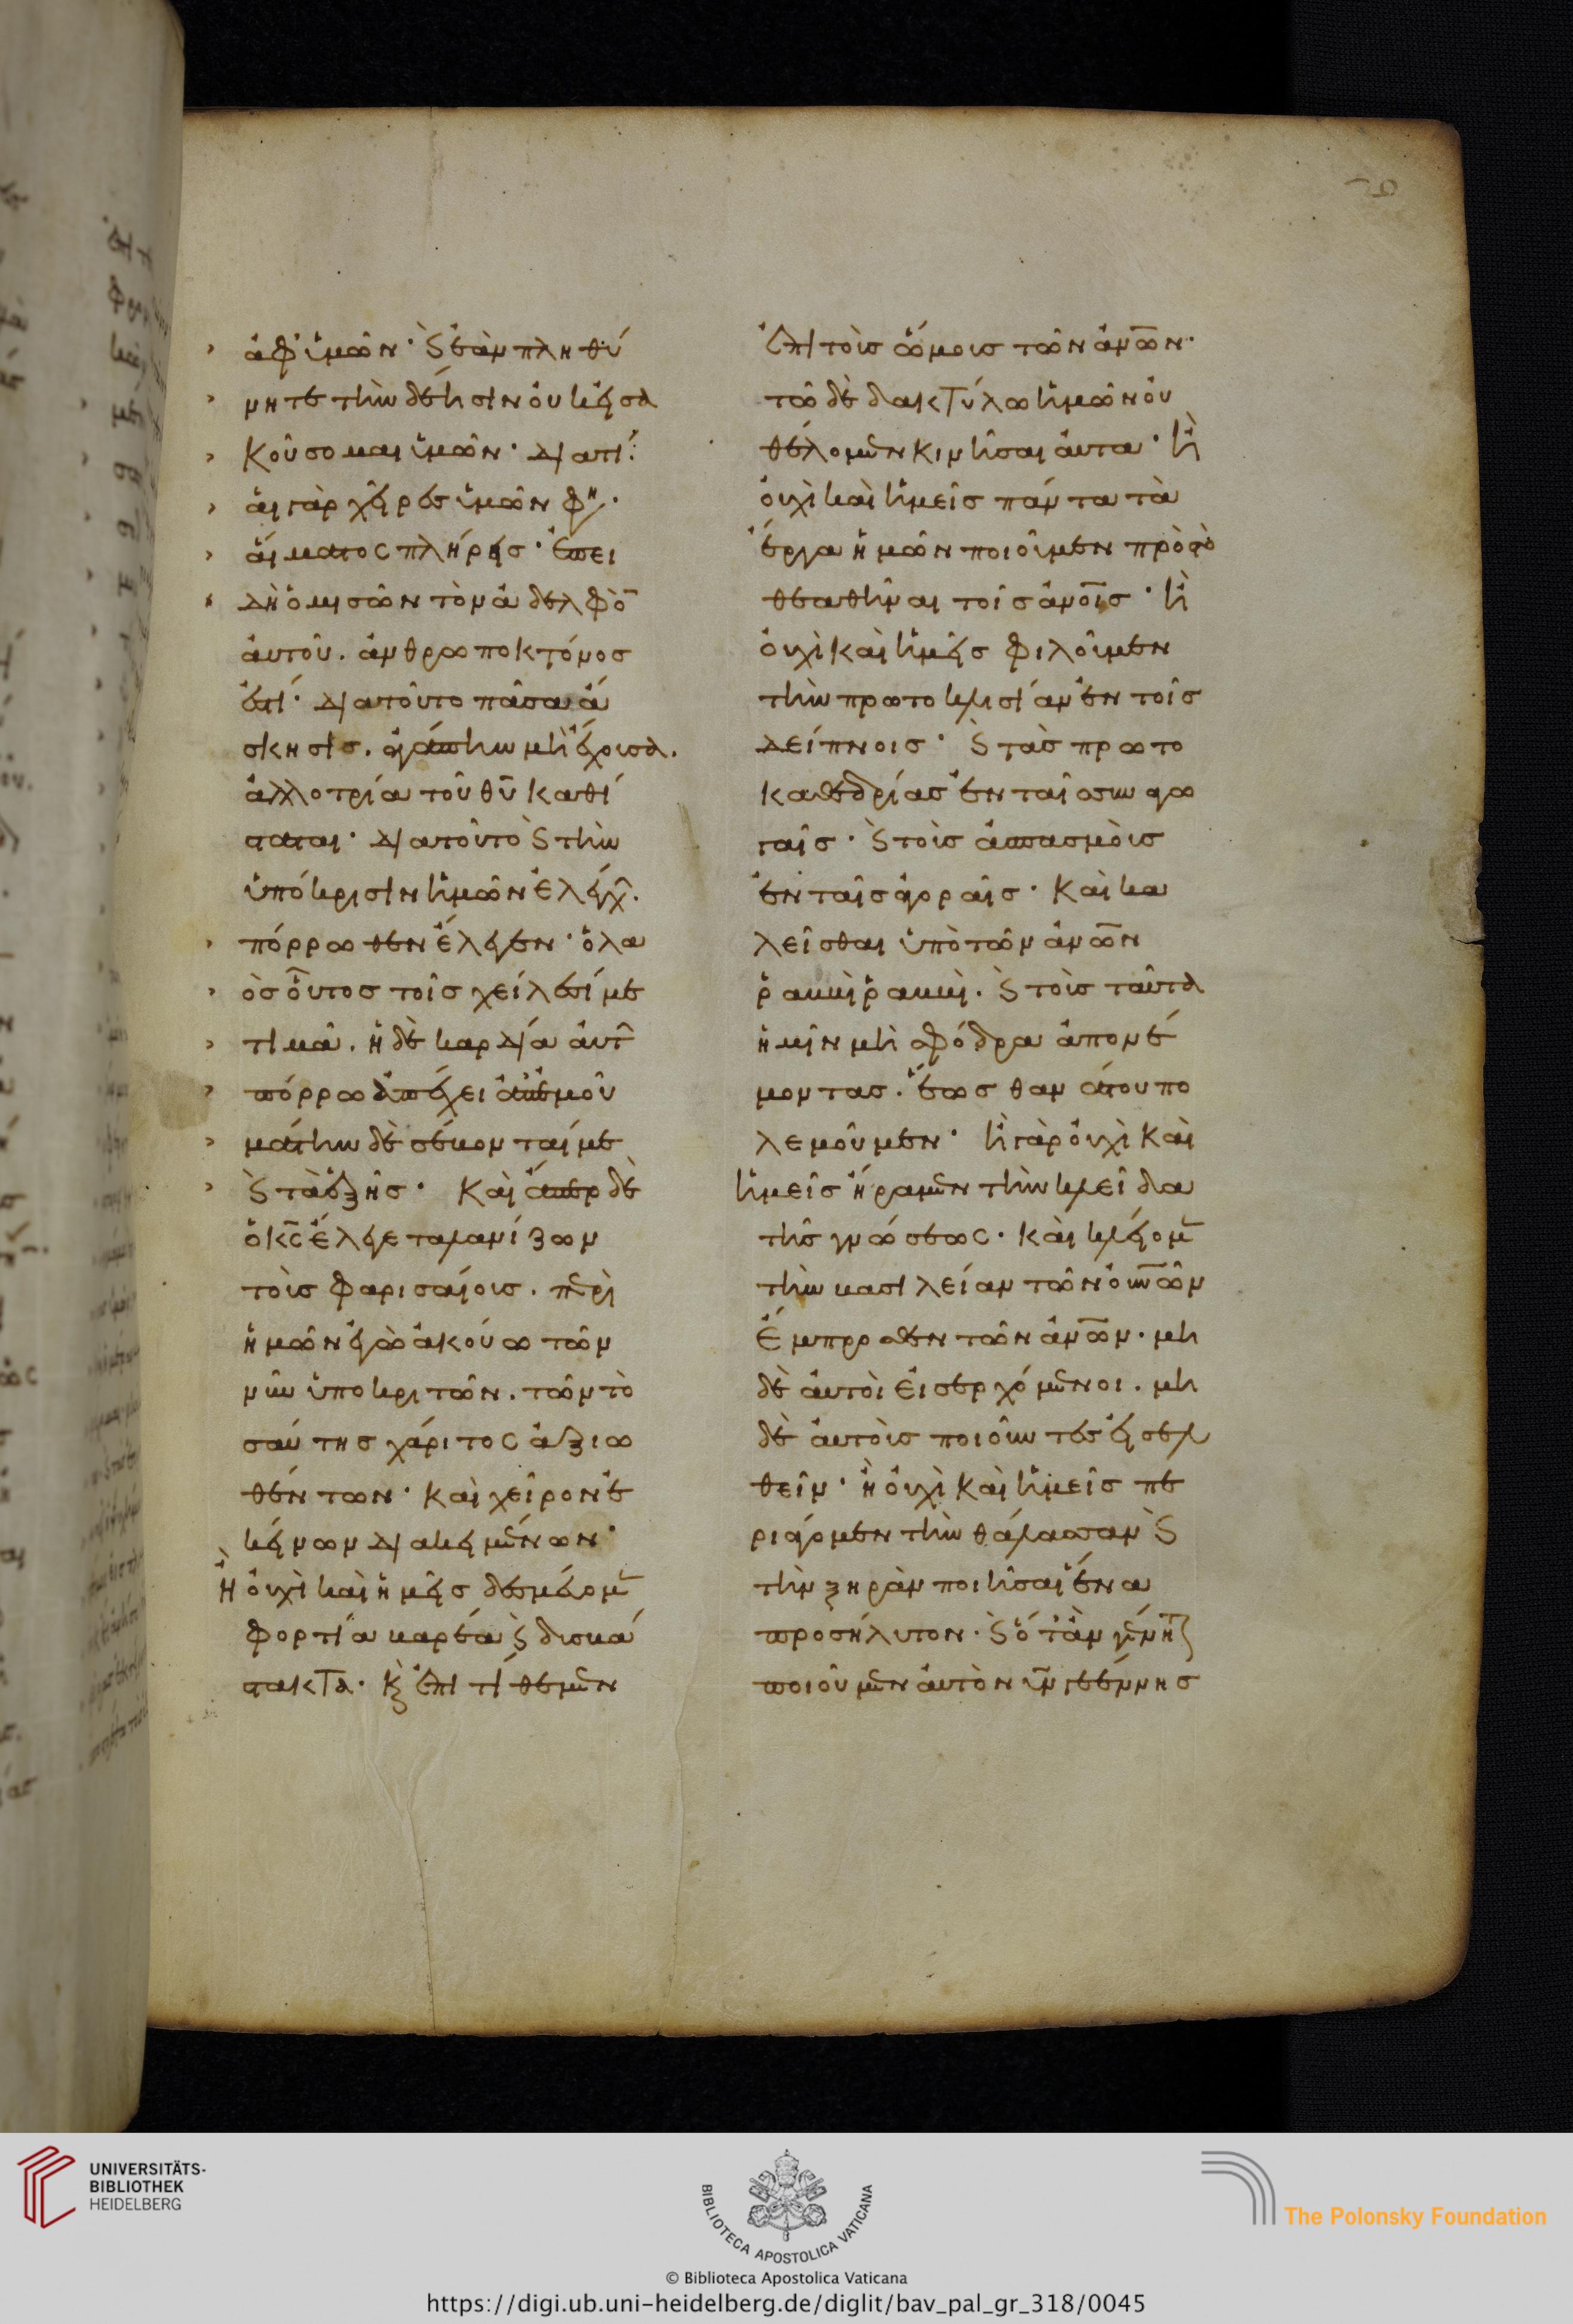 ἀφ' ὑμῶν· καὶ ἐὰν πληθύ
νητε τὴν δέησιν οὐκ εἰσα
κούσομαι ὑμῶν· διατί·
αἱ γὰρ χεῖρες ὑμῶν φη·
αἵματος πλήρεις· ἐπει
δὴ ὁ μισῶν τὸν ἀδελφὸ̄
αὐτοῦ. ἀνθρωποκτόνος
ἐστί· διατοῦτο πᾶσα ἄ
σκησις. ἀγάπην μὴ ἔχουσα.
ἀλλοτρία τοῦ θῡ καθί
σταται· διατοῦτο καὶ τὴν
ὑπόκρισιν ἡμῶν ἐλέγχ.
πόρρωθεν ἔλεγεν· ὁ λα
ὸς οὗτος τοῖς χείλεσί με
τιμᾶ. ἡ δὲ καρδία αὐτ
πόρρω ἀπέχει ἀπ' ἐμοῦ
μάτην δὲ σέβονταί με
καὶ τὰ ἑξῆς· Καὶ ἅπερ δὲ
ὁ κς̄ ἔλεγε ταλανίζων
τοὺς φαρισαίους. περὶ
ἡμῶν ἐγὼ ἀκούω τῶν
νῦν ὑποκριτῶν. τῶν το
σαύτης χάριτος ἀξιω
θέντων· καὶ χεῖρον ἐ
κείνων διακειμένων·
Ἢ οὐχὶ καὶ ἡμεῖς δεσμεύομ
φορτία βαρέα καὶ δυσβά
στακτα· καὶ ἐπιτίθεμεν
ἐπὶ τοὺς ὤμους τῶν ἀν̄ων·
τῶ δὲ δακτύλω ἡμῶν οὐ
θέλομεν κινῆσαι αὐτά· ἢ
οὐχὶ καὶ ἡμεῖς πάντα τὰ
ἔργα ἡμῶν ποιοῦμεν πρὸς τὸ
θεαθῆναι τοῖς ἀν̄οις· ἢ
οὐχὶ καὶ ἡμεῖς φιλοῦμεν
τὴν πρωτοκλισίαν ἐν τοῖς
δείπνοις· καὶ τὰς πρωτο
καθεδρίας ἐν ταῖς συναγω
γαῖς· καὶ τοὺς ἀσπασμοὺς
ἐν ταῖς ἀγοραῖς· Καὶ κα
λεῖσθαι ὑπὸ τῶν ἀν̄ων
ῥαββὶ ῥαββί. καὶ τοὺς ταῦτα
ἡμῖν μὴ σφόδρα ἀπονέ
μοντας. ἕως θανάτου πο
λεμοῦμεν· ἢ γὰρ οὐχὶ καὶ
ἡμεῖς ἤραμεν τὴν κλεῖδα
τῆς γνώσεως· καὶ κλείομ
τὴν βασιλείαν τῶν οὐν̄ῶν
ἔμπροσθεν τῶν ἀν̄ων· μὴ
δὲ αὐτοὶ εἰσερχόμενοι. μὴ
δὲ αὐτοὺς ποιοῦντες εἰσελ
θεῖν· ἢ οὐχὶ καὶ ἡμεῖς πε
ριάγομεν τὴν θάλασσαν καὶ
τὴν ξηρὰν ποιῆσαι ἕνα
προσήλυτον· καὶ ὅταν γένηται
ποιοῦμεν αὐτὸν υἱὸν γεέννης
UNIVERSITÄTS-
BIBLIOTHEK
HEIDELBERG
BIBLIOTECA APOSTOLICA VATICANA
The Polonsky Foundation
© Biblioteca Apostolica Vaticana
https://digi.ub.uni-heidelberg.de/diglit/bav_pal_gr_318/0045